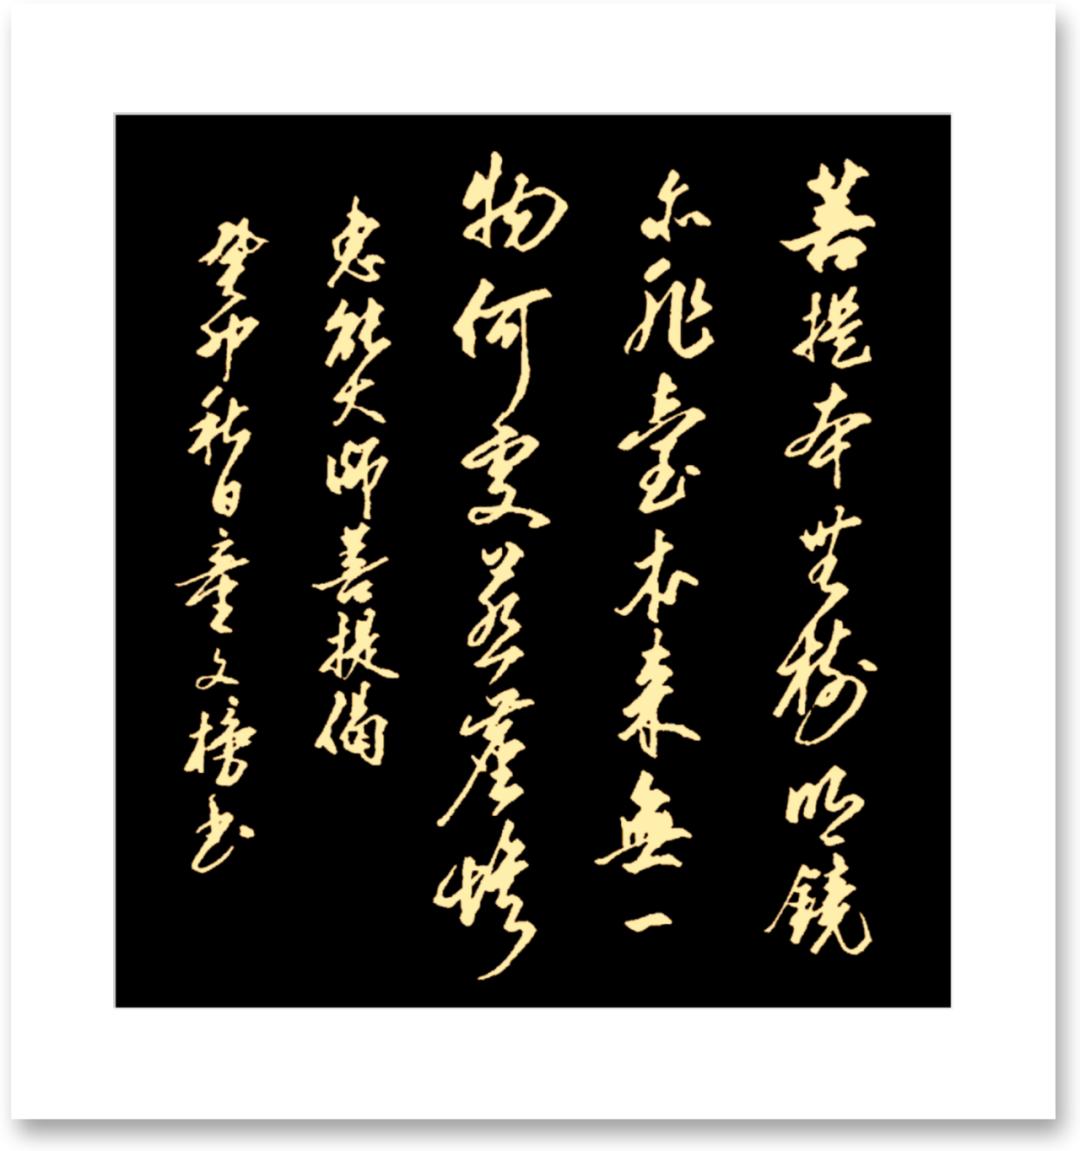 菩提本无树明镜
亦非臺本来無一
物何处惹塵埃
惠能大师菩提偈
癸卯秋日童文榜书